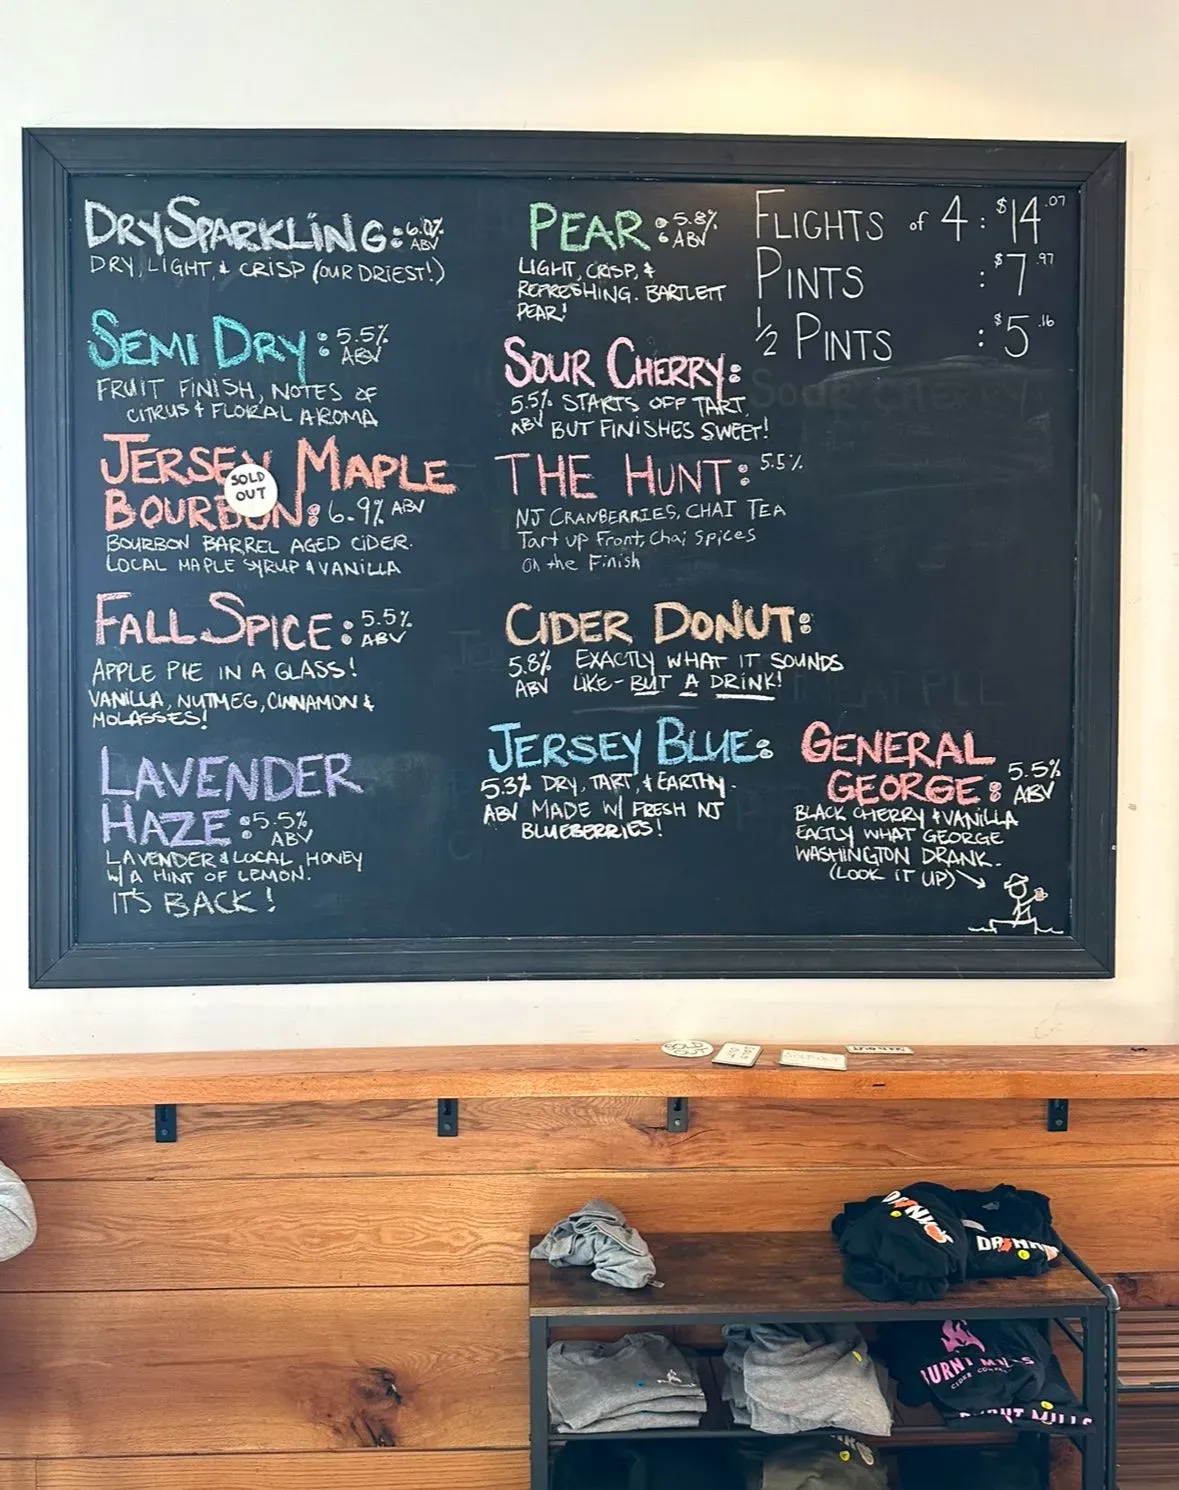 DRY SPARKLING: 6.0% ABV
DRY, LIGHT, & CRISP (OUR DRIEST!)
SEMI DRY: 5.5% ABV
FRUIT FINISH, NOTES OF
CITRUS & FLORAL AROMA
JERSEY MAPLE
SOLD
OUT
BOURBON: 6.9% ABV
BOURBON BARREL AGED CIDER.
LOCAL MAPLE SYRUP & VANILLA
FALL SPICE: 5.5% ABV
APPLE PIE IN A GLASS!
VANILLA, NUTMEG, CINNAMON &
MOLASSES!
LAVENDER
HAZE: 5.5% ABV
LAVENDER & LOCAL HONEY
W/ A HINT OF LEMON.
IT'S BACK!
PEAR: 5.8% ABV
LIGHT, CRISP, &
REFRESHING. BARTLETT
PEAR!
SOUR CHERRY:
5.5% STARTS OFF TART
ABV BUT FINISHES SWEET!
THE HUNT: 5.5%
NJ CRANBERRIES, CHAI TEA
Tart up Front, Chai Spices
On the Finish
CIDER DONUT:
5.8% EXACTLY WHAT IT SOUNDS
ABV LIKE - BUT A DRINK!
JERSEY BLUE:
5.3% DRY, TART, & EARTHY.
ABV MADE W/ FRESH NJ
BLUEBERRIES!
FLIGHTS of 4: $14.07
PINTS : $7.97
1/2 PINTS : $5.16
Sour Cherry
GENERAL
GEORGE: 5.5% ABV
BLACK CHERRY & VANILLA
EACTLY WHAT GEORGE
WASHINGTON DRANK.
(LOOK IT UP)
SOLD OUT
SOLD OUT
BURNT MILLS
CIDER COMPANY
BURNT MILLS